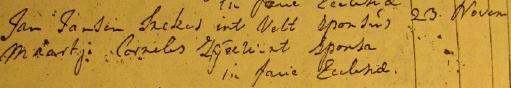 in facie Ecclesiæ
Jan Jansen Snekes int Velt Sponsus 23 Novem
Maartji Cornelis Sponsa
in facie Ecclesiæ.